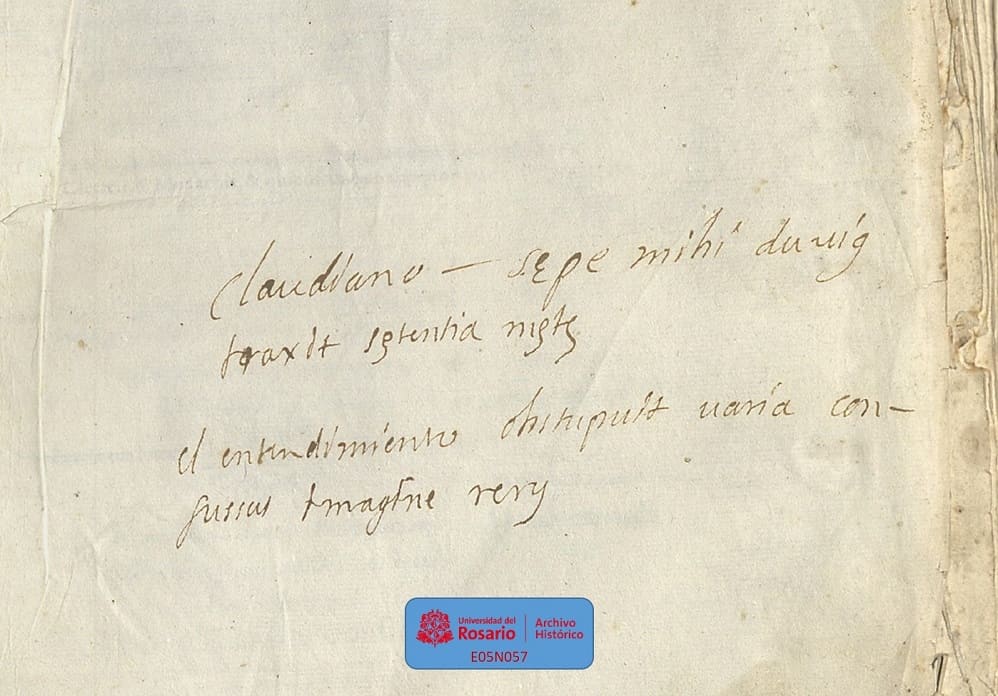 claudiano — sępe mihi duuiā
traxit sētentia mētē
el entendimiento obstupuit uaria con-
fussus imagine rerū
Universidad del
Rosario
Archivo
Histórico
E05N057